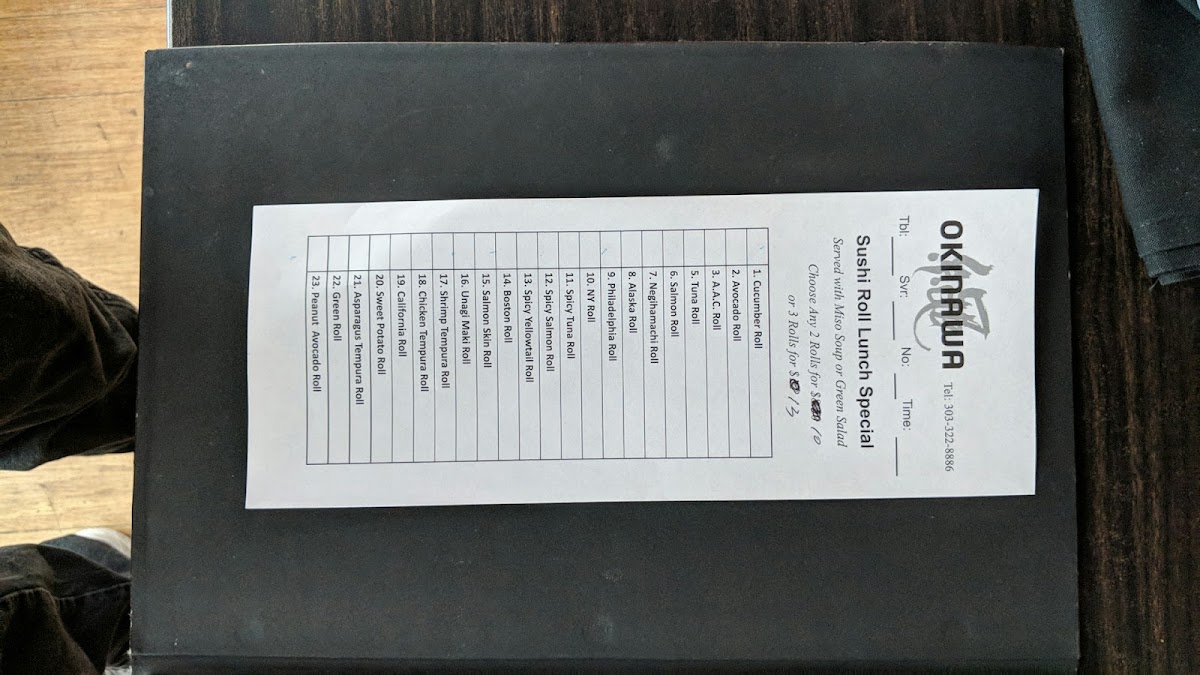 OKINAWA Tel: 303-322-8886
Tbl: ____ Svr: ____ No: ____ Time: ____
Sushi Roll Lunch Special
Served with Miso Soup or Green Salad
Choose Any 2 Rolls for $ 10
or 3 Rolls for $ 13
1. Cucumber Roll
2. Avocado Roll
3. A.A.C. Roll
5. Tuna Roll
6. Salmon Roll
7. Negihamachi Roll
8. Alaska Roll
9. Philadelphia Roll
10. NY Roll
11. Spicy Tuna Roll
12. Spicy Salmon Roll
13. Spicy Yellowtail Roll
14. Boston Roll
15. Salmon Skin Roll
16. Unagi Maki Roll
17. Shrimp Tempura Roll
18. Chicken Tempura Roll
19. California Roll
20. Sweet Potato Roll
21. Asparagus Tempura Roll
22. Green Roll
23. Peanut Avocado Roll